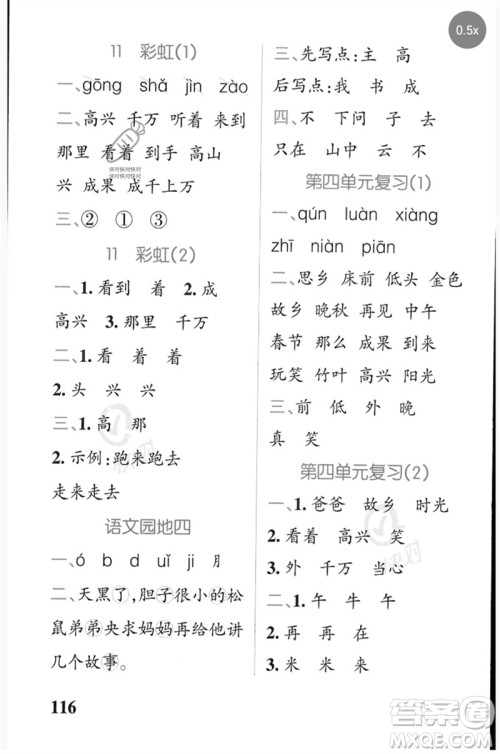 0.5x
11 彩虹(1)
一、gōng shǎ jìn zào
二、高兴 千万 听着 来到
那里 看着 到了 高山
兴 成果 成千上万
三、② ① ③
11 彩虹(2)
一、1.看到 着 2.成
高兴 3.那里 千万
二、1.看 着 着
2.头 兴 兴
三、1.高 那
2.示例:跑来跑去
走来走去
语文园地四
一、ó b d uǐ ji 月
二、天黑了,胆子很小的松
鼠弟弟央求妈妈再给他讲
几个故事。
116
三、先写点:主 高
后写点:我 书 成
四、不 下问 子 去
只在 山中 云 不
第四单元复习(1)
一、qún luàn xiàng
zhī niàn piān
二、思乡 床前 低头 金色
故乡 晚秋 再见 中午
春节 那么 成果 到来
玩笑 竹叶 高兴 阳光
三、前 低 外 晚
真 笑
第四单元复习(2)
一、1.爸爸 故乡 时光
2.看着 高兴 笑
3.外 千万 当心
二、1.午 牛 午
2.再 再 在
3.米 来 来
快对快对快对
快对快对快对
快对
答案圈
MXQE.COM